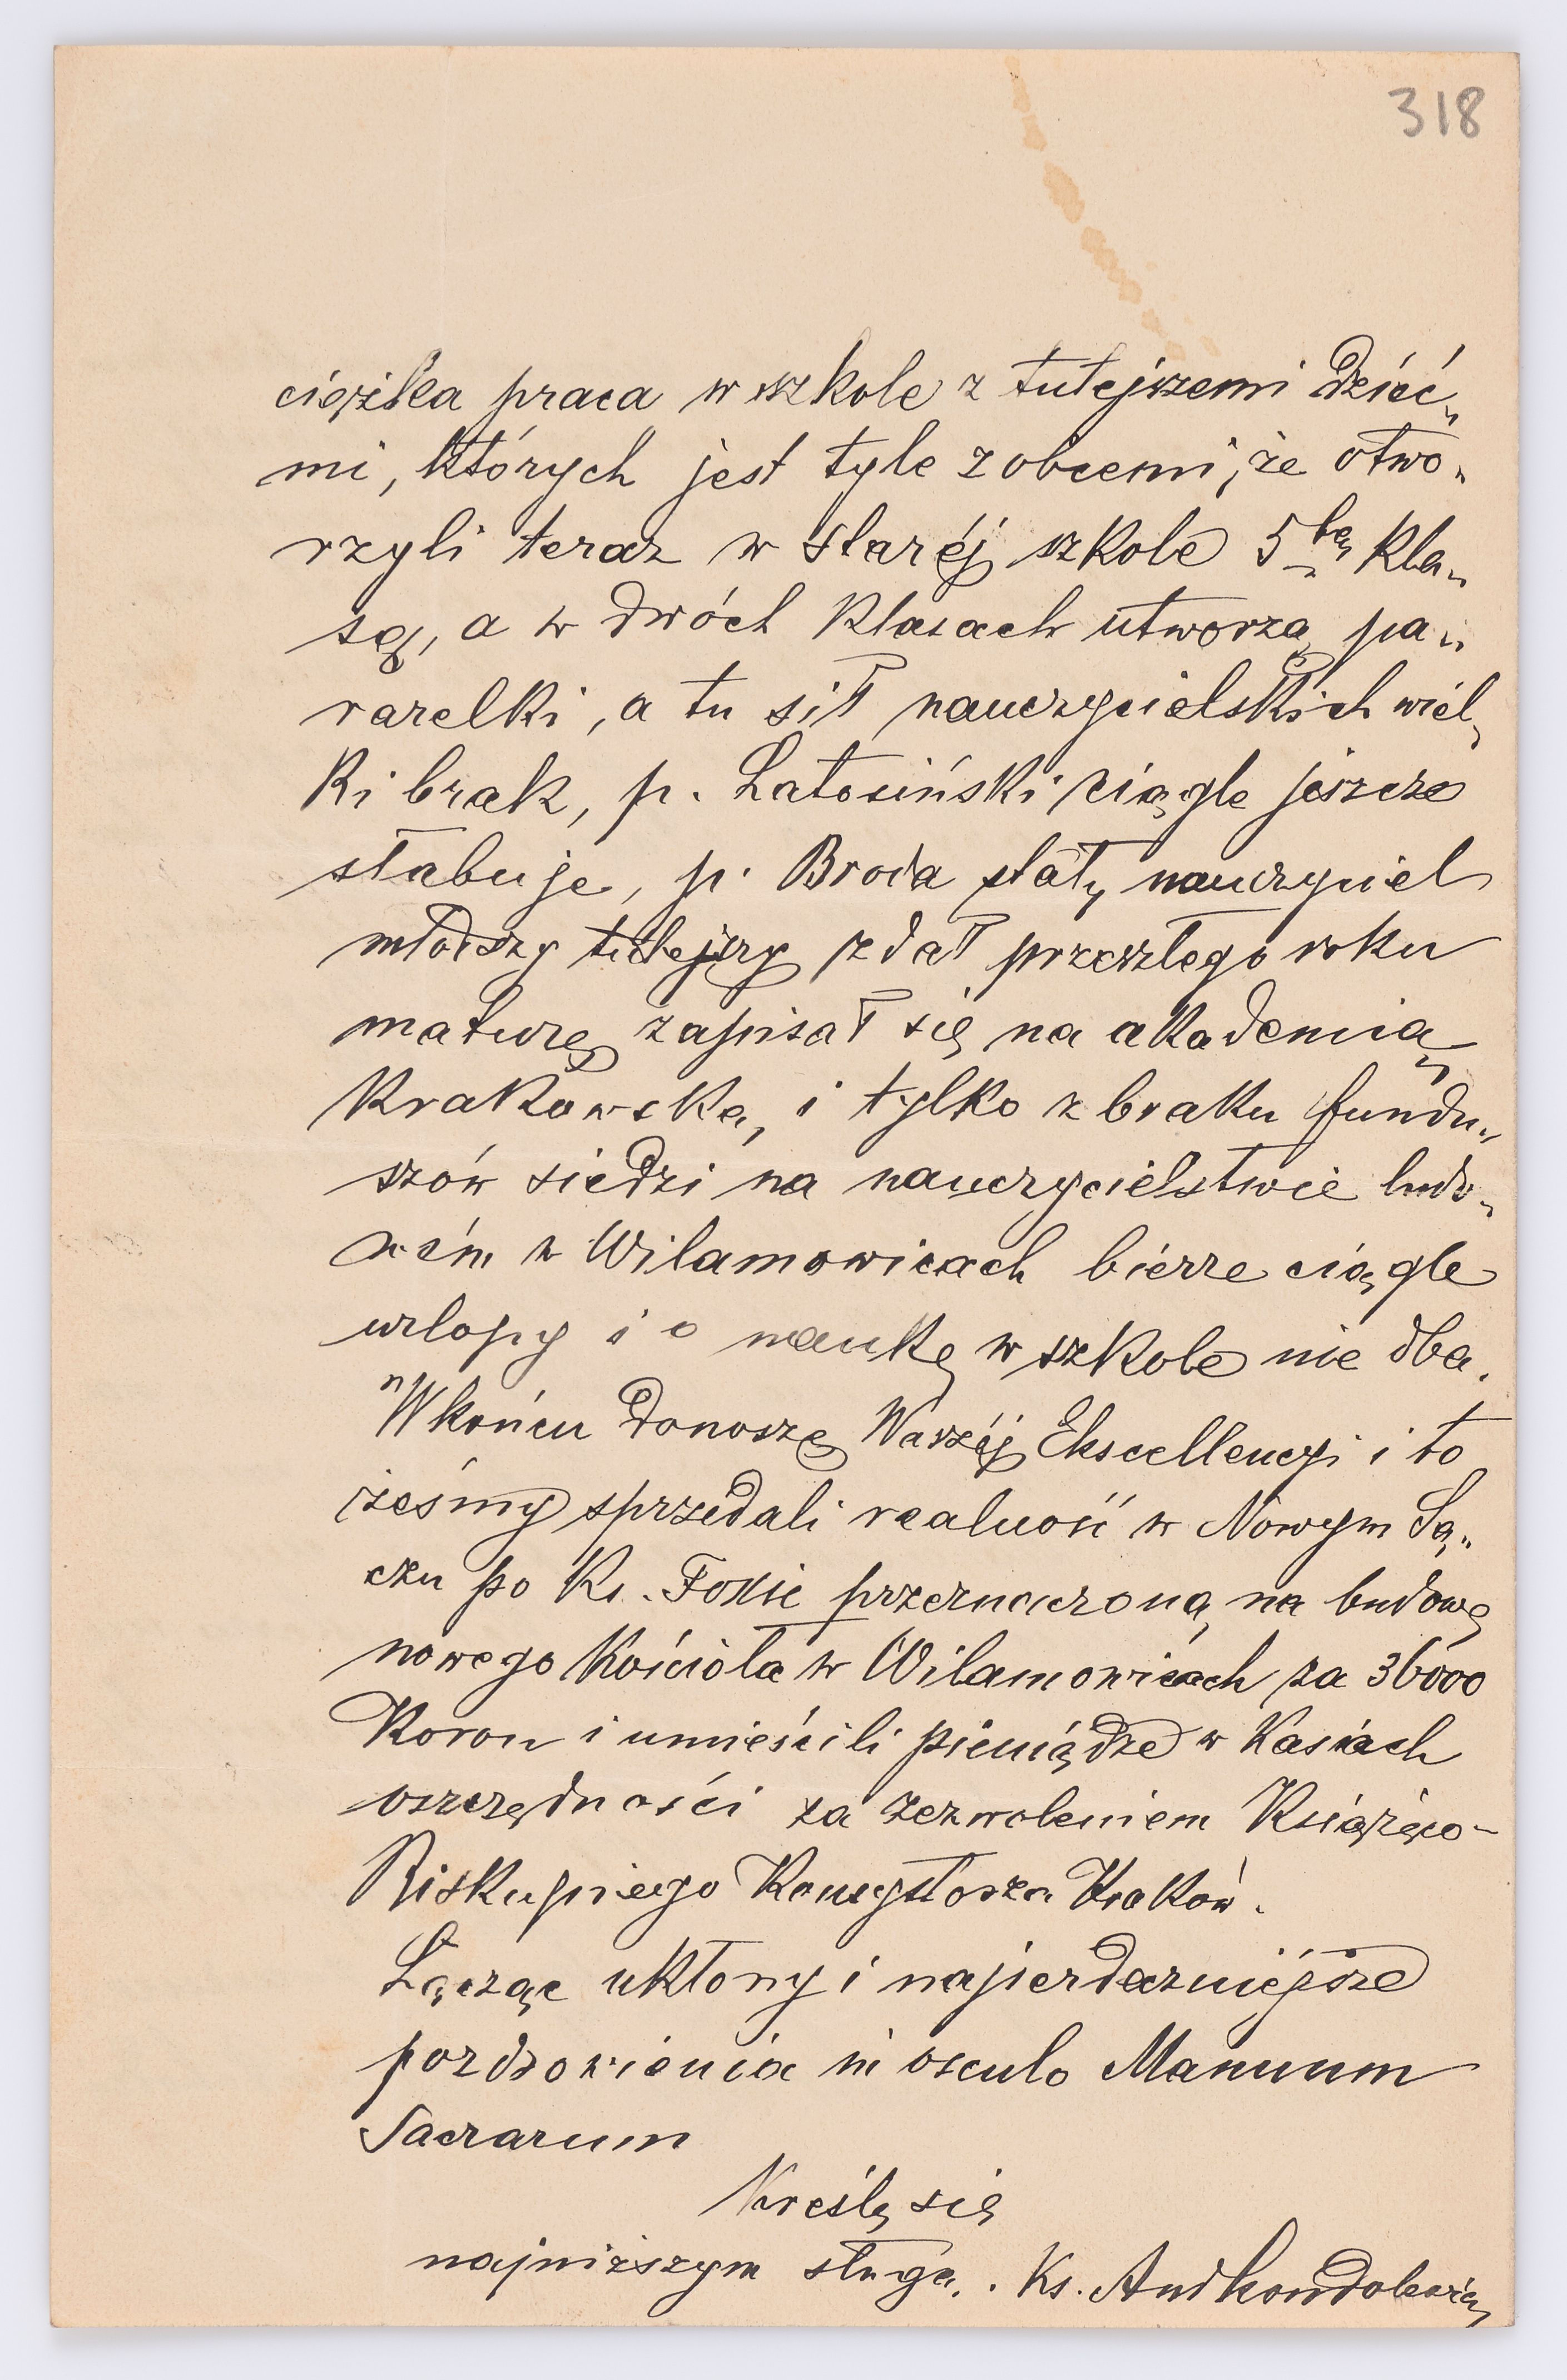 318
ciężka praca w szkole z tutejszemi dzieć„
mi, których jest tyle z obcemi, że otwo„
rzyli teraz w staréj szkole 5tą kla„
sę, a w dwóch klasach utworzą pa„
rarelki, a tu sił nauczycielskich wiel„
ki brak, p. Latosiński ciągle jeszcze
słabuje, p. Broda stały nauczyciel
młodszy tutejszy zdał przeszłego roku
maturę zapisał się na akademią
Krakowską, i tylko z braku fundu„
szów siedzi na nauczycielstwie ludo„
wém w Wilamowicach bierze ciągle
urlopy i o naukę w szkole nie dba.
W końcu donoszę Waszéj Ekscellencyi i to
żeśmy sprzedali realność w Nowym Są„
czu po Ks. Foxie przeznaczoną na budowę
nowego Kościoła w Wilamowicach za 36000
Koron i umieścili pieniądze w Kasach
oszczędności za zezwoleniem Książęco-
Biskupiego Konsystorza Kraków.
Łącząc ukłony i najserdeczniéjsze
pozdrowienia in osculo Manuum
Sacrarum
Kreślę się
najniższym sługą. Ks.